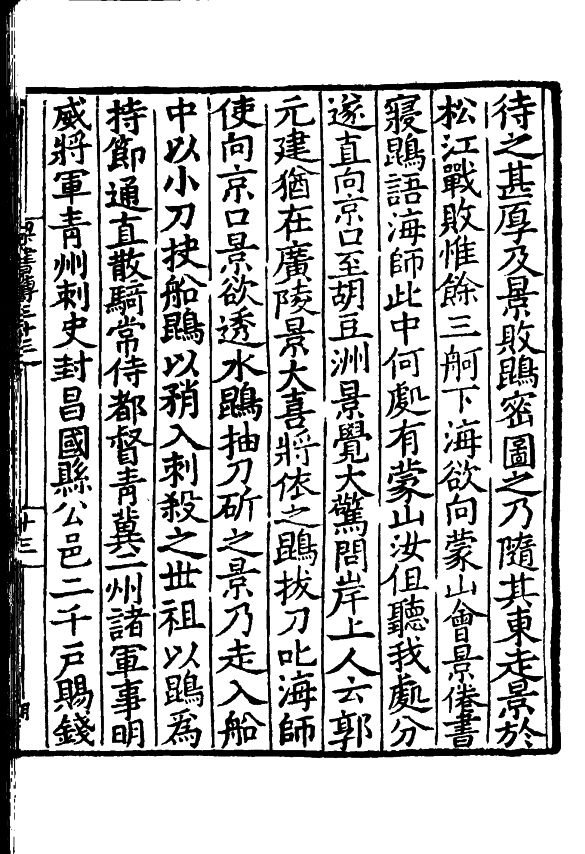 待之甚厚及景敗鵾密圖之乃隨其東走景於
松江戰敗惟餘三舸下海欲向蒙山會景倦晝
寢鵾語海師此中何處有蒙山汝但聽我處分
遂直向京口至胡豆洲景覺大驚問岸上人云郭
元建猶在廣陵景大喜將依之鵾拔刀叱海師
使向京口景欲透水鵾抽刀斫之景乃走入船
中以小刀抉船鵾以矟入刺殺之世祖以鵾為
持節通直散騎常侍都督青冀二州諸軍事明
威將軍青州刺史封昌國縣公邑二千戶賜錢
梁書傳三十三
十三